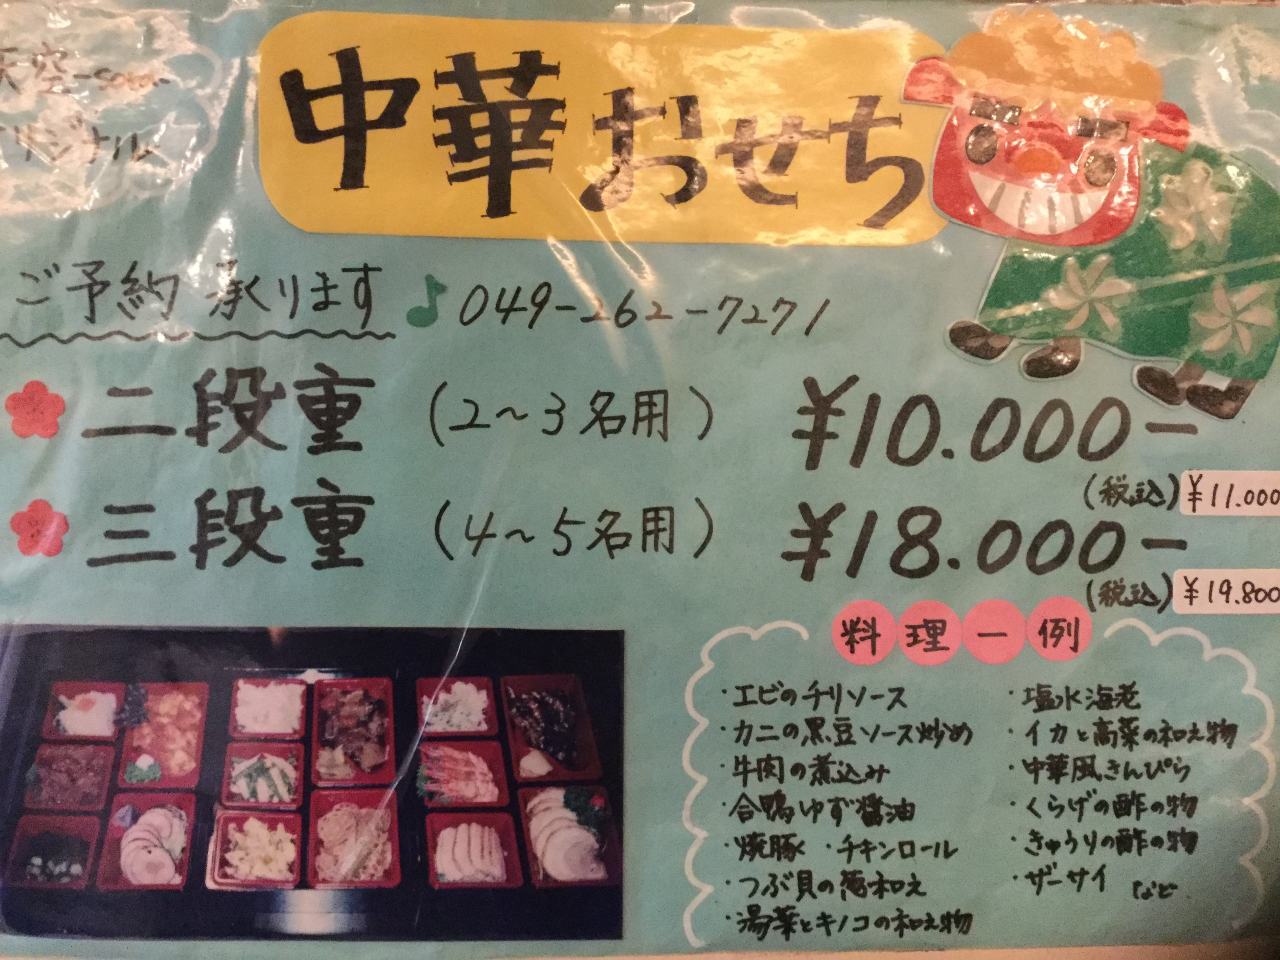 天空-sora-
オリジナル
中華おせち
ご予約 承ります♪049-262-7271
二段重 (2〜3名用) ¥10.000-
(税込) ¥11.000
三段重 (4〜5名用) ¥18.000-
(税込) ¥19.800
料理一例
・エビのチリソース
・カニの黒豆ソース炒め
・牛肉の煮込み
・合鴨ゆず醤油
・焼豚 ・チキンロール
・つぶ貝の葱和え
・湯葉とキノコの和え物
・塩水海老
・イカと高菜の和え物
・中華風きんぴら
・くらげの酢の物
・きゅうりの酢の物
・ザーサイ など